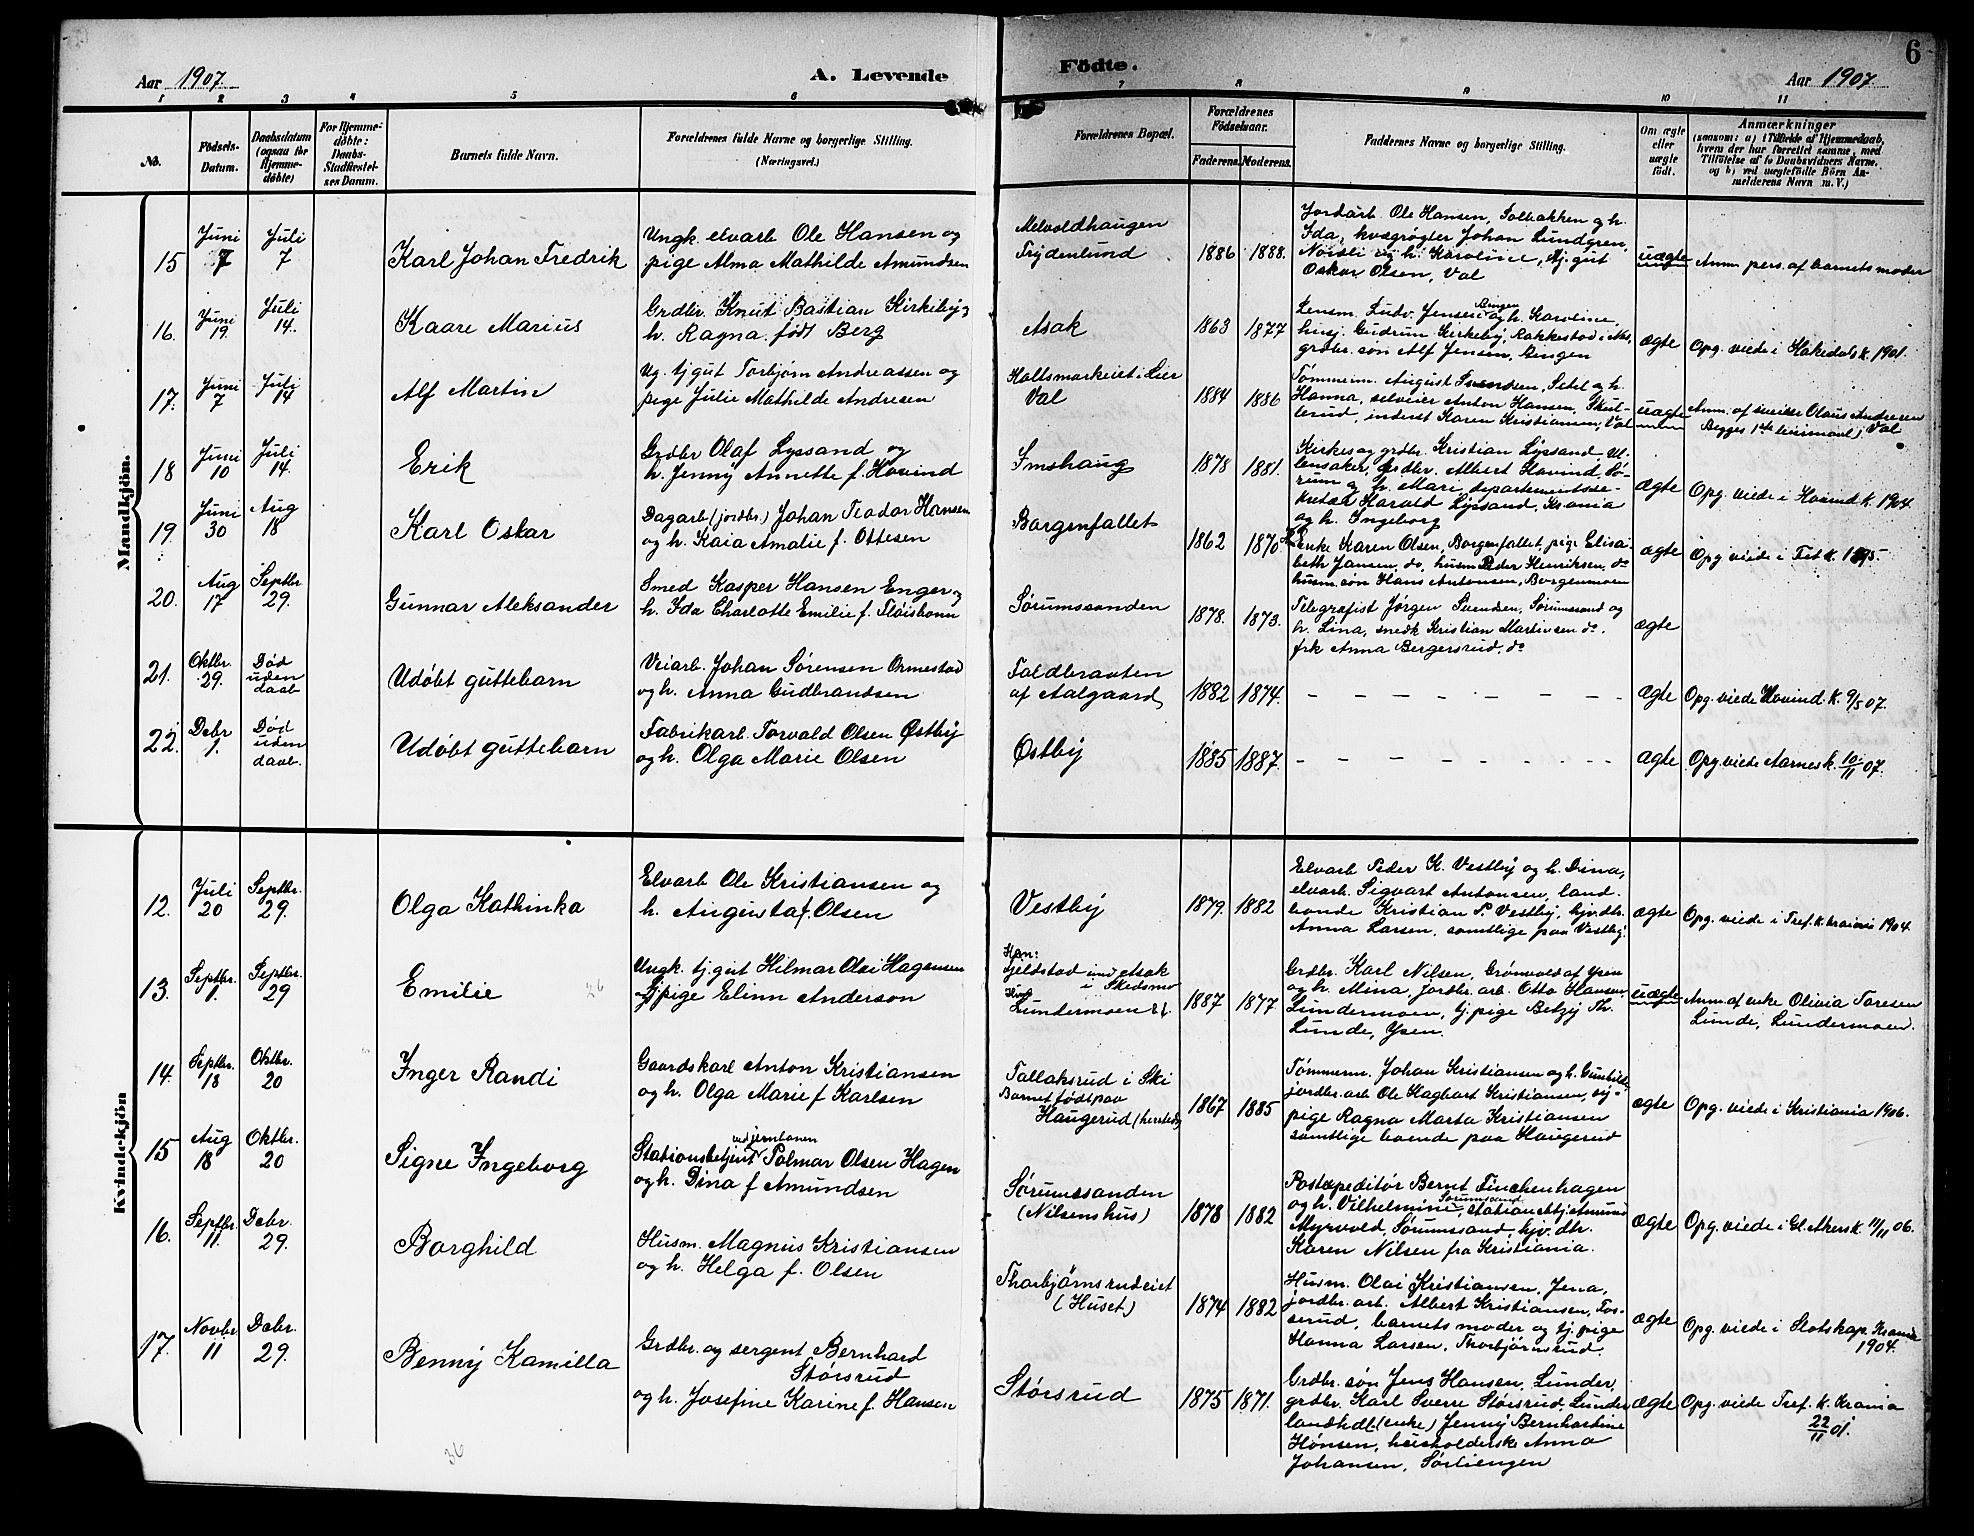 6
Aar 1907.
A. Levende
Födte.
Aar 1907
1 2 3 4 5 6 7 8 9 10 11
No.
Födsels-
Datum.
Daabsdatum
(ogsaa for
Hjemme-
döbte)
For Hjemme-
döbte:
Daabs-
Stadfæstel-
ses Datum.
Barnets fulde Navn.
Forældrenes fulde Navne og borgerlige Stilling.
(Næringsvei.)
Forældrenes Bopæl.
Forældrenes
Födselsaar.
Faderens.
Moderens.
Faddernes Navne og borgerlige Stilling.
Om ægte
eller
uægte
født.
Anmærkninger
(saasom: a) i Tilfælde af Hjemmedaab,
hvem der har forrettet samme, med
Tilföielse af to Daabsvidners Navne,
og b) ved uægtefödte Börn An-
melderens Navn m. V.)
Mandkjön.
15
Juni
7
Juli
7
Karl Johan Fredrik
Ungk. elvarb Ole Hansen og
pige Alma Mathilde Amundsen
Melvoldhaugen
Frydenlund
1886
1888.
Jordarb. Ole Hansen, Solbakken og h.
Ida, kvægrøgter Johan Lundgren,
Nordli og h. Karoline, tj. gut
Oskar Olsen, Val
uægte
Anm. pers. af barnets moder
16.
Juni
19.
Juli
14.
Kaare Marius
Grdbr. Knut Bastian Kirkeby og
h. Ragna født Berg
Asak
1863
1877
Lensm. Ludv. Jensen Bingen og h. Karoline,
husj. Gudrun Kirkeby, Rakkestad i Nes,
grdbr. søn Alf Jensen, Bingen
ægte
Opg. viede i Hakedals k. 1901.
17.
Juni
7
Juli
14
Alf Martin
Ug. tj gut Torbjørn Andreassen og
pige Julie Mathilde Andresen
Holtsmarkeiet i Lier
Val
1884
1886
Tømmerm. August Svendsen, Sehl og h.
Hanna, selveier Anton Hansen, Skul-
lerud, inderst Karen Kristiansen, Val
uægte
Anm. af sveiser Olaus Andresen
Begges 1ste leiermaal. Val
18
Juni
10
Juli
14.
Erik
Grdbr Olaf Lyssand og
h. Jenny Annette f. Hovind
Imshaug
1878
1881.
Kirkes. og grdbr. Kristian Lyssand, Ul-
lensaker, grdbr. Albert Hovind, Sø-
rum og h. Mari, departementsse-
kretær Harald Lyssand, Krania
og h. Ingeborg
ægte
Opg. viede i Hovind k. 1904.
19.
Juni
30
Aug
18
Karl Oskar
Dagarb. (jordbr.) Johan Teodor Hansen
og h. Kaia Amalie f. Ottesen
Borgenfallet
1862
1870
Enke Karen Olsen, Borgenfallet, pige Elisa-
beth Jansen, do, husm Peder Henriksen, do
husm. søn Hans Antonsen, Borgenmoen
ægte
Opg. viede i Fet k. 1895
20.
Aug
17
Septbr
29.
Gunnar Aleksander
Smed Kasper Hansen Enger og
h. Ida Charlotte Emilie f. Fløisbonn
Sørumssanden
1878.
1873.
Telegrafist Jørgen Svendsen, Sørumssand og
h. Lina, snedk Kristian Martinsen do.
frk Anna Bergersrud, do
ægte
21.
Oktbr.
29.
Død
uden
daab
Udøbt guttebarn
Veiarb. Johan Sørensen Ormestad
og h. Anna Gudbrandsen
Foldbraaten
af Aalgaard
1882
1874.
ægte
Opg. viede Hovind. k. 9/5 07.
22.
Debr
1.
Død
uden
daab.
Udøbt guttebarn
Fabrikarb. Torvald Olsen Østby
og h. Olga Marie Olsen
Østby
1885
1887.
ægte
Opg. viede Aarnes k. 10/11 07.
Kvindekjön
12.
Juli
20
Septbr.
29.
Olga Kathinka
Elvarb Ole Kristiansen og
h. Augusta f. Olsen
Vestby
1879.
1882
Elvarb Peder K. Vestby og h. Dina,
elvarb. Sigvart Antonsen, land-
bonde Kristian P. Vestby, tjv.dtr.
Anna Larsen, samtlige paa Vestby.
ægte
Opg. viede i Tref. k. Krania 1904.
13.
Septbr.
1.
Septbr.
29
Emilie
26
Ungk. tj. gut Hilmar Olai Hagensen
tj. pige Elinn Anderson
Han:
Gjeldstad ind Asak
i Skedsmo
Hun
Lundermoen
1887
1877.
Grdbr. Karl Nilsen, Grønvold af Ysen
og h. Mina, Jordbr. arb. Otto Hansen,
Lundermoen, tj. pige Betzy Th.
Lunde, Ysen.
uægte
Anm. af enke Olivia Toresen
Lunde, Lundermoen.
14.
Septbr.
18
Oktbr.
20
Inger Randi
Gaardskarl Anton Kristiansen
og h. Olga Marie f Karlsen
Tallaksrud i Ski
Barnet født paa
Haugerud (hersteds)
1867
1885
Tømmerm. Johan Kristiansen og h. Gunhilde,
jordbr. arb Ole Hagbart Kristiansen, sy-
pige Ragna Marta Kristiansen
samtlige boende paa Haugerud
ægte
Opg. viede i Kristiania 1906.
15
Aug
18
Oktbr.
20
Signe Ingeborg
Stationsbetjent ved jernbanen Palmar Olsen Hagen
og h. Dina f Amundsen
Sørumssanden
(Nilsenshus)
1878
1882
Postexpeditør Bernt Finckenhagen
og h. Vilhelmine, Sørumsand, stationsbtj. Amund
Myrvold, Sørumssand, tjv. dtr.
Karen Nilsen fra Kristiania.
ægte
Opg. viede i Gl. Akers k. 11/11 06.
16.
Septbr.
11.
Debr.
29.
Borghild
Husm. Magnus Kristiansen
og h. Helga f. Olsen
Thorbjørnsrudeiet
(Huset)
1874
1882
Husm. Olai Kristiansen, Jena,
jordbr. arb. Albert Kristiansen, Fos-
serud, barnets moder og tj. pige
Hanna Larsen, Thorbjørnsrud.
ægte
Opg. viede i Slotskap. Krania
1904.
17.
Novbr
11
Debr.
29.
Benny Kamilla
Grdbr. og sergent Bernhard
Størsrud
og h. Josefine Karine f. Hansen
Størsrud
1875
1871.
Grdbr. søn Jens Hansen, Lunder,
grdbr. Karl Sverre Størsrud, Lunder
landhdl. (enke) Jenny Bernhartine
Hønsen, husholderske Anna
Johansen, Sørliengen
ægte
Opg. viede Tref. k. Krania
22/11 01.
36